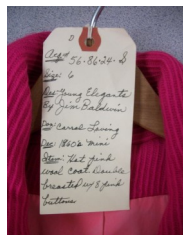 D
Acq# 56-86-24-S
Size: 6
Des: Young Elegante
By Jim Baldwin
Don: Carrol Loving
Dec: 1960's Mini
Item: Hot pink
wool coat Double
breasted w/8 pink
buttons